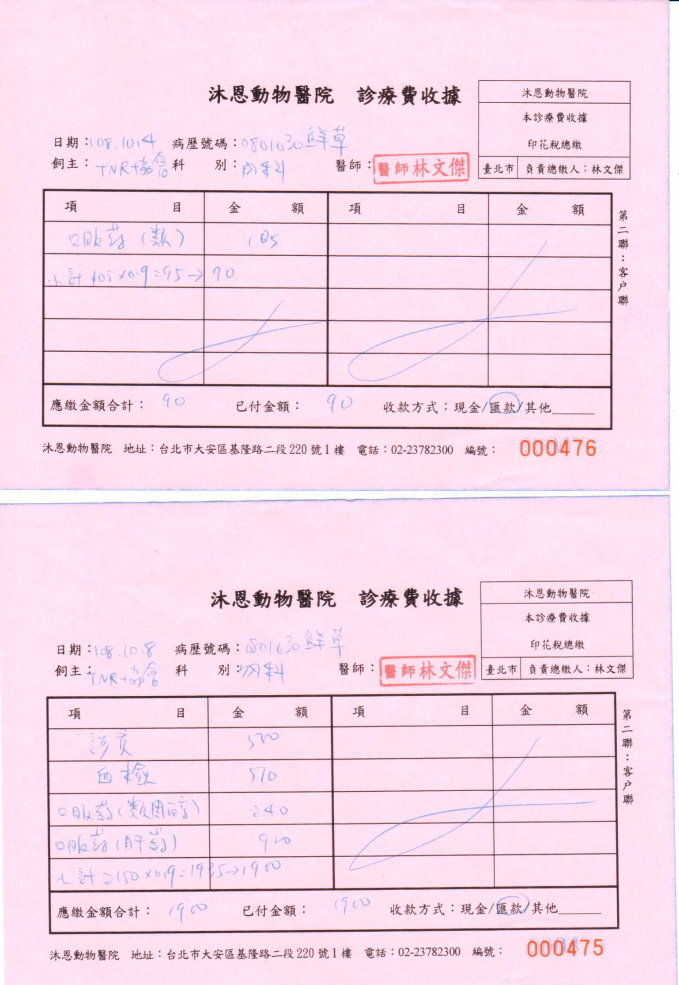 沐恩動物醫院 診療費收據
沐恩動物醫院
本診療費收據
印花稅總繳
臺北市 負責總繳人：林文傑
日期：108.10.14 病歷號碼：0801630 鮮草
飼主：TNR協會 科 別：內科 醫師： 醫師林文傑
項 目 金 額 項 目 金 額
口服葯(類) 105
小計 105×0.9=95→90
應繳金額合計： 90 已付金額： 90 收款方式：現金/匯款/其他
第二聯：客戶聯
沐恩動物醫院 地址：台北市大安區基隆路二段220號1樓 電話：02-23782300 編號： 000476
沐恩動物醫院 診療費收據
沐恩動物醫院
本診療費收據
印花稅總繳
臺北市 負責總繳人：林文傑
日期：108.10.8 病歷號碼：0801630 鮮草
飼主：TNR協會 科 別：內科 醫師： 醫師林文傑
項 目 金 額 項 目 金 額
診費
血檢 510
口服葯(類固醇) 240
口服葯(肝葯) 900
小計 2150×0.9=1935→1900
應繳金額合計： 1900 已付金額： 1900 收款方式：現金/匯款/其他
第二聯：客戶聯
沐恩動物醫院 地址：台北市大安區基隆路二段220號1樓 電話：02-23782300 編號： 000475